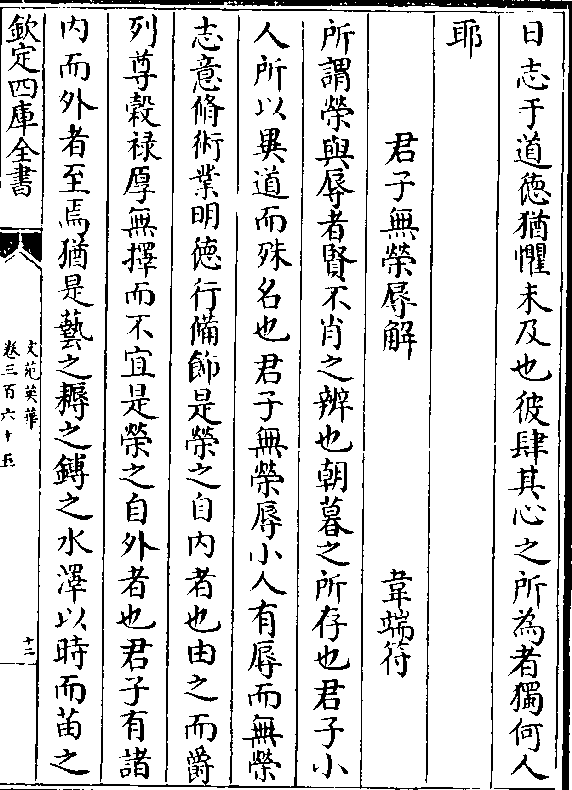 日志于道徳猶懼未及也彼肆其心之所為者獨何人
耶
君子無榮辱解 韋端符
所謂榮與辱者賢不肖之辨也朝暮之所存也君子小
人所以異道而殊名也君子無榮辱小人有辱而無榮
志意脩術業明徳行備飾是榮之自内者也由之而爵
列尊榖禄厚無擇而不宜是榮之自外者也君子有諸
内而外者至焉猶是藝之耨之鎛之水澤以時而苗之
欽定四庫全書
文苑英華
卷三百六十五
十二